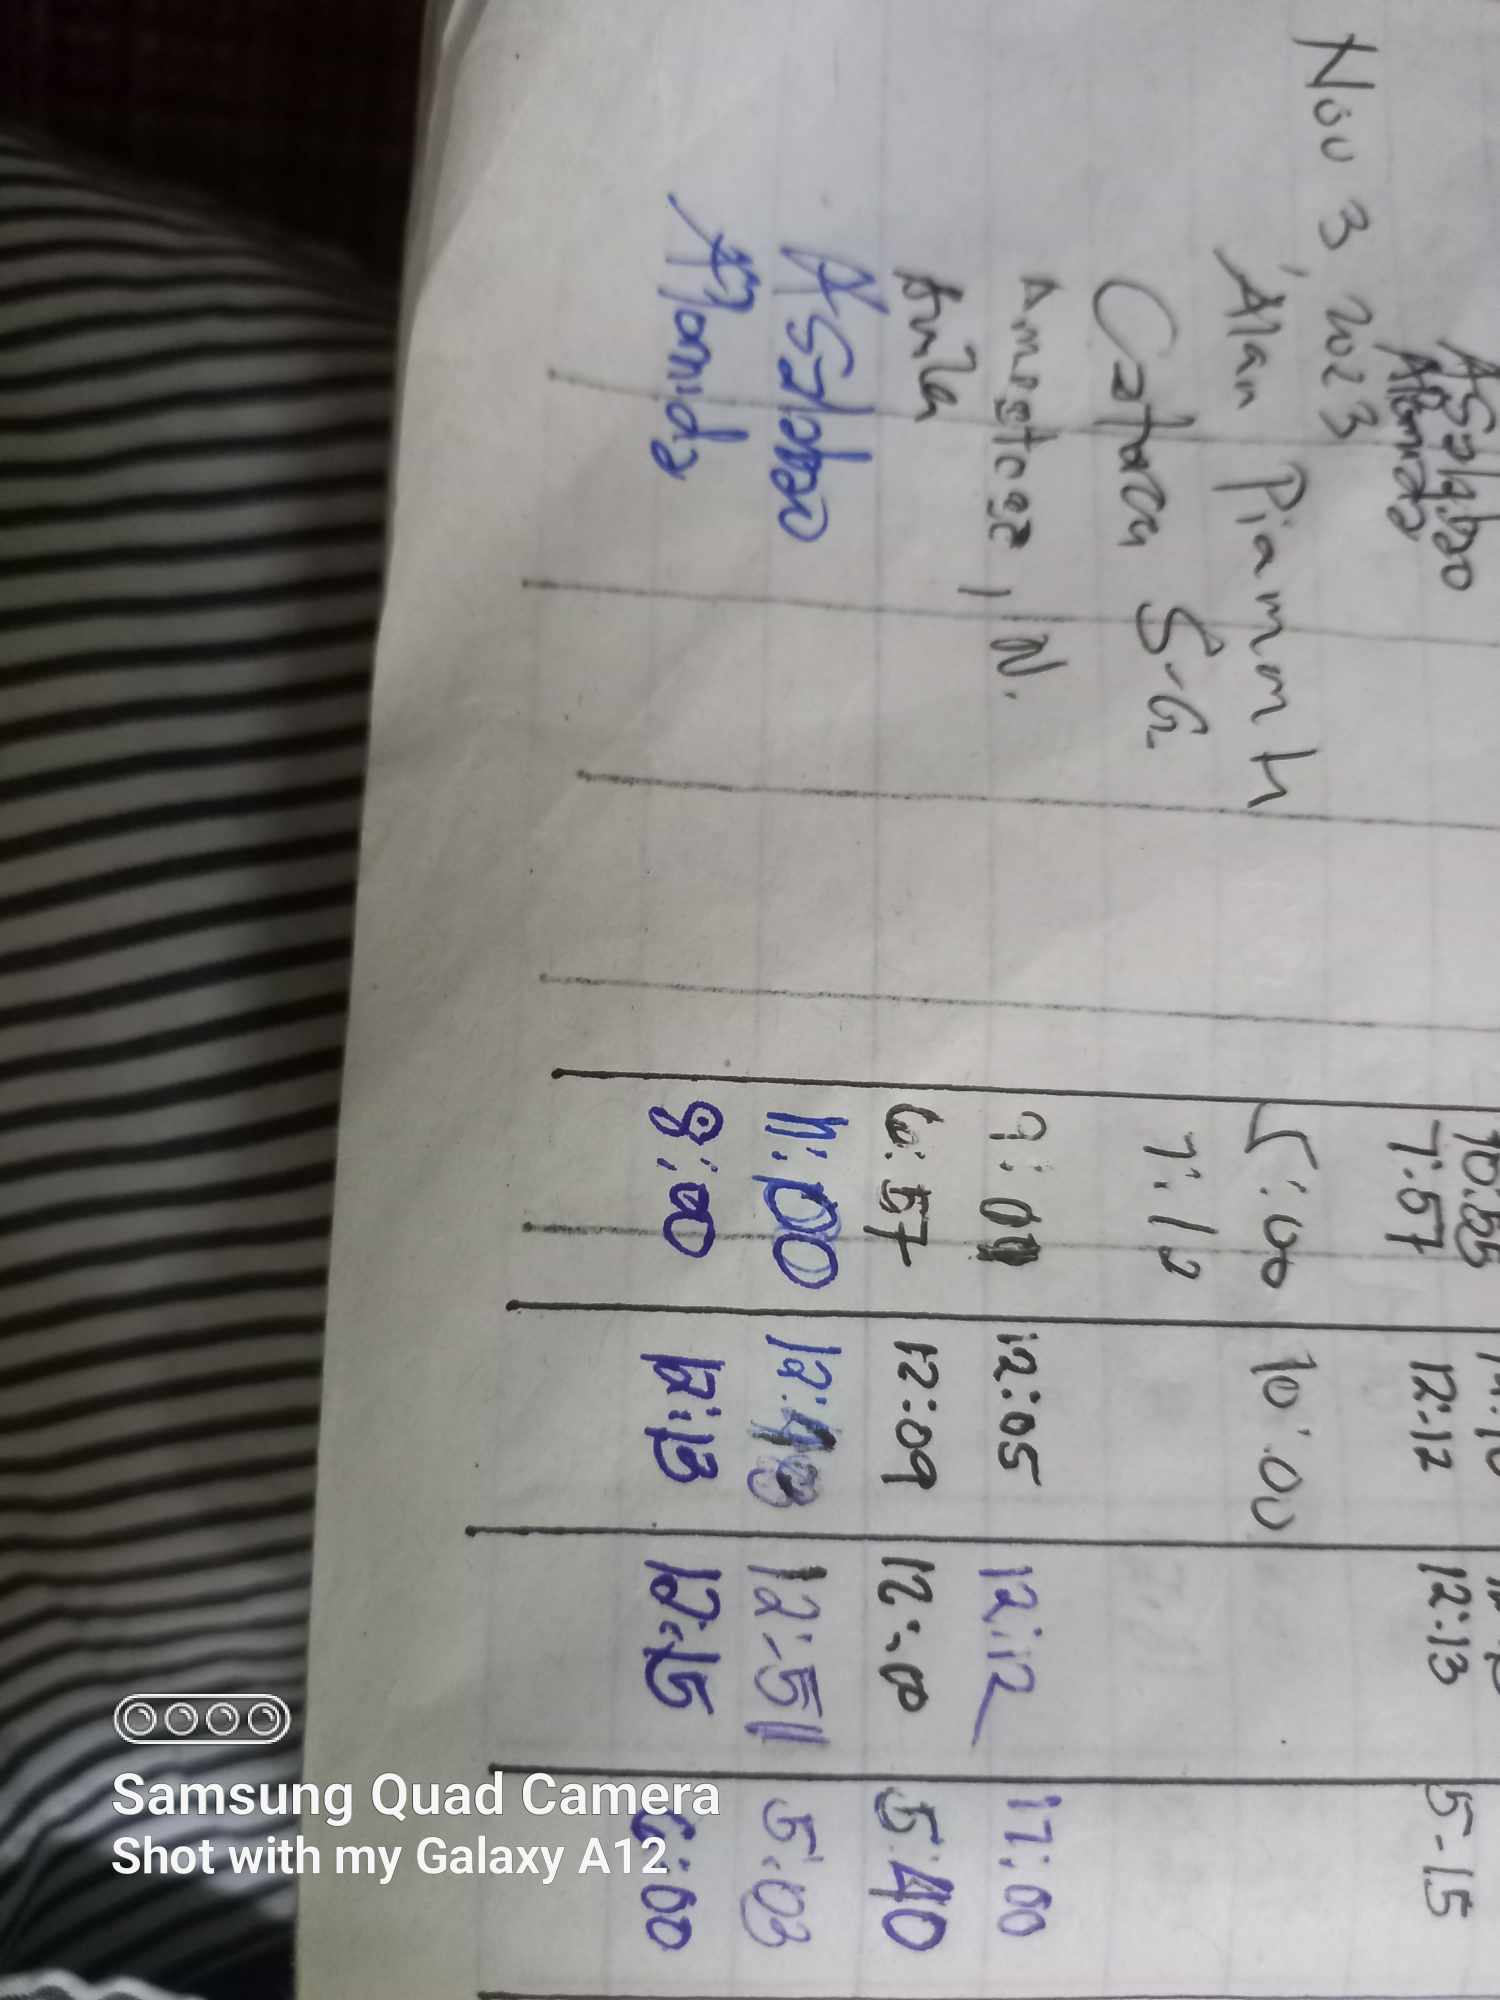 Asalibao 10:55
Almida 7:57 12:12 12:13 5-15
Nov 3, 2023
Alan Piamonh 5:00 10:00
S.G. 7:12
N. 9:01 12:05 12:12 17:00
Anila 6:57 12:09 12:10 5:40
11:00 12:48 12:51 5:03
Almida 8:00 12:13 12:15 5:00
Samsung Quad Camera
Shot with my Galaxy A12